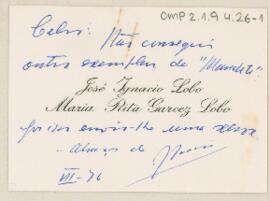 OMP 2.1.9 4.26-1
Celso: Não consegui
outro exemplar de "Mundéu":
José Ignacio Lobo
Maria Rita Garcez Lobo
por isso envio-lhe uma xerox
Abraço de
VII-76